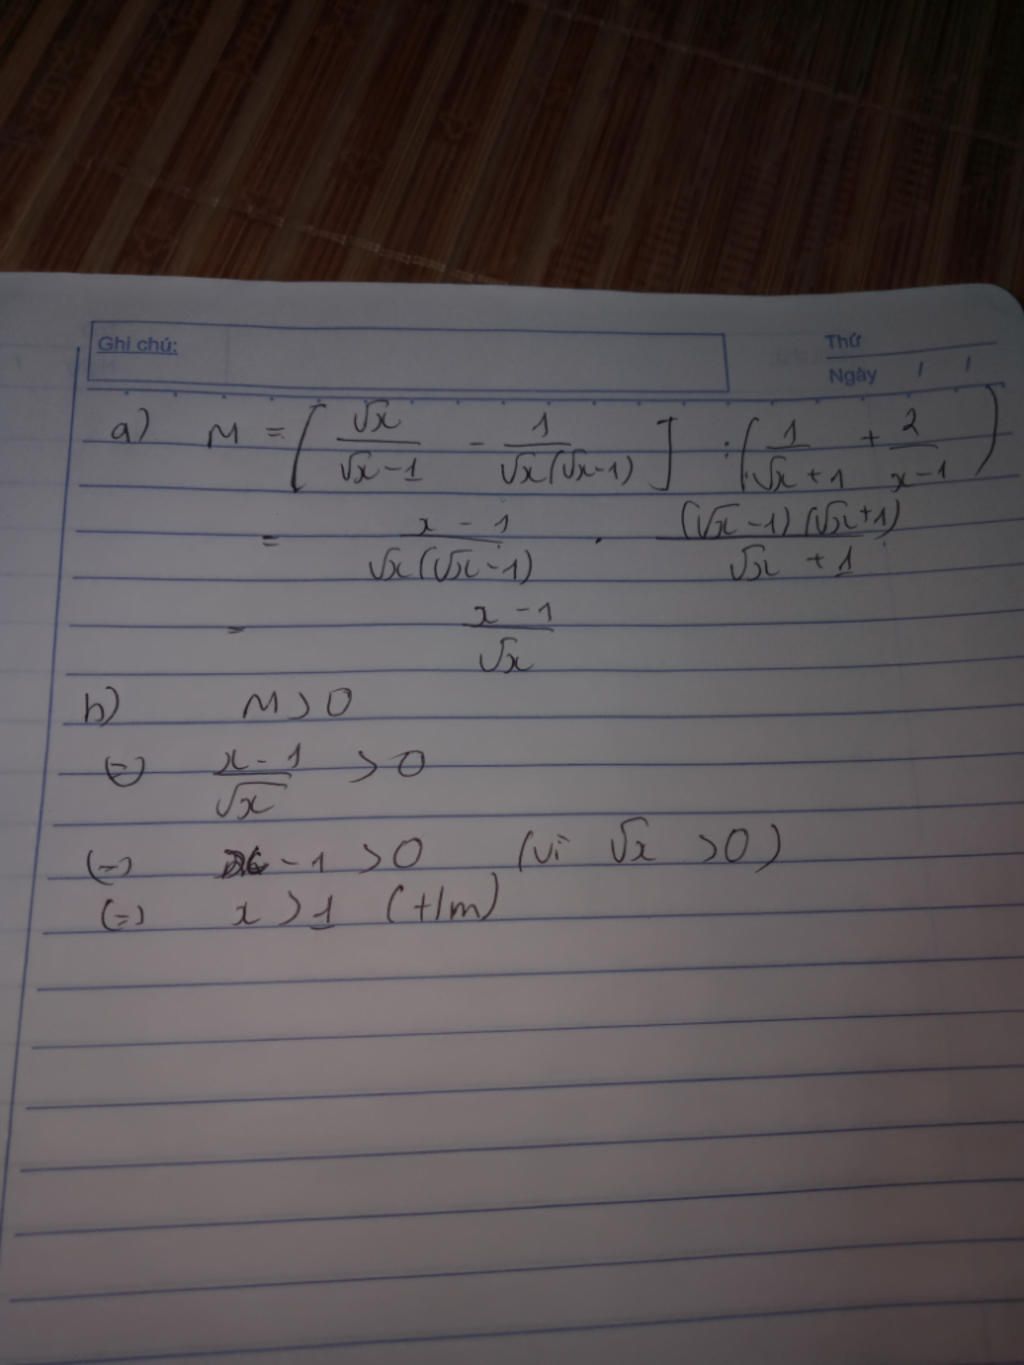 Ghi chú:
Thứ
Ngày / /
a) M = [ √x/(√x-1) - 1/(√x(√x-1)) ] : ( 1/(√x+1) + 2/(x-1) )
= (x-1)/(√x(√x-1)) . ((√x-1)(√x+1))/(√x+1)
= (x-1)/√x
b) M > 0
(=) (x-1)/√x > 0
(=) x-1 > 0 (vì √x > 0)
(=) x > 1 (t/m)